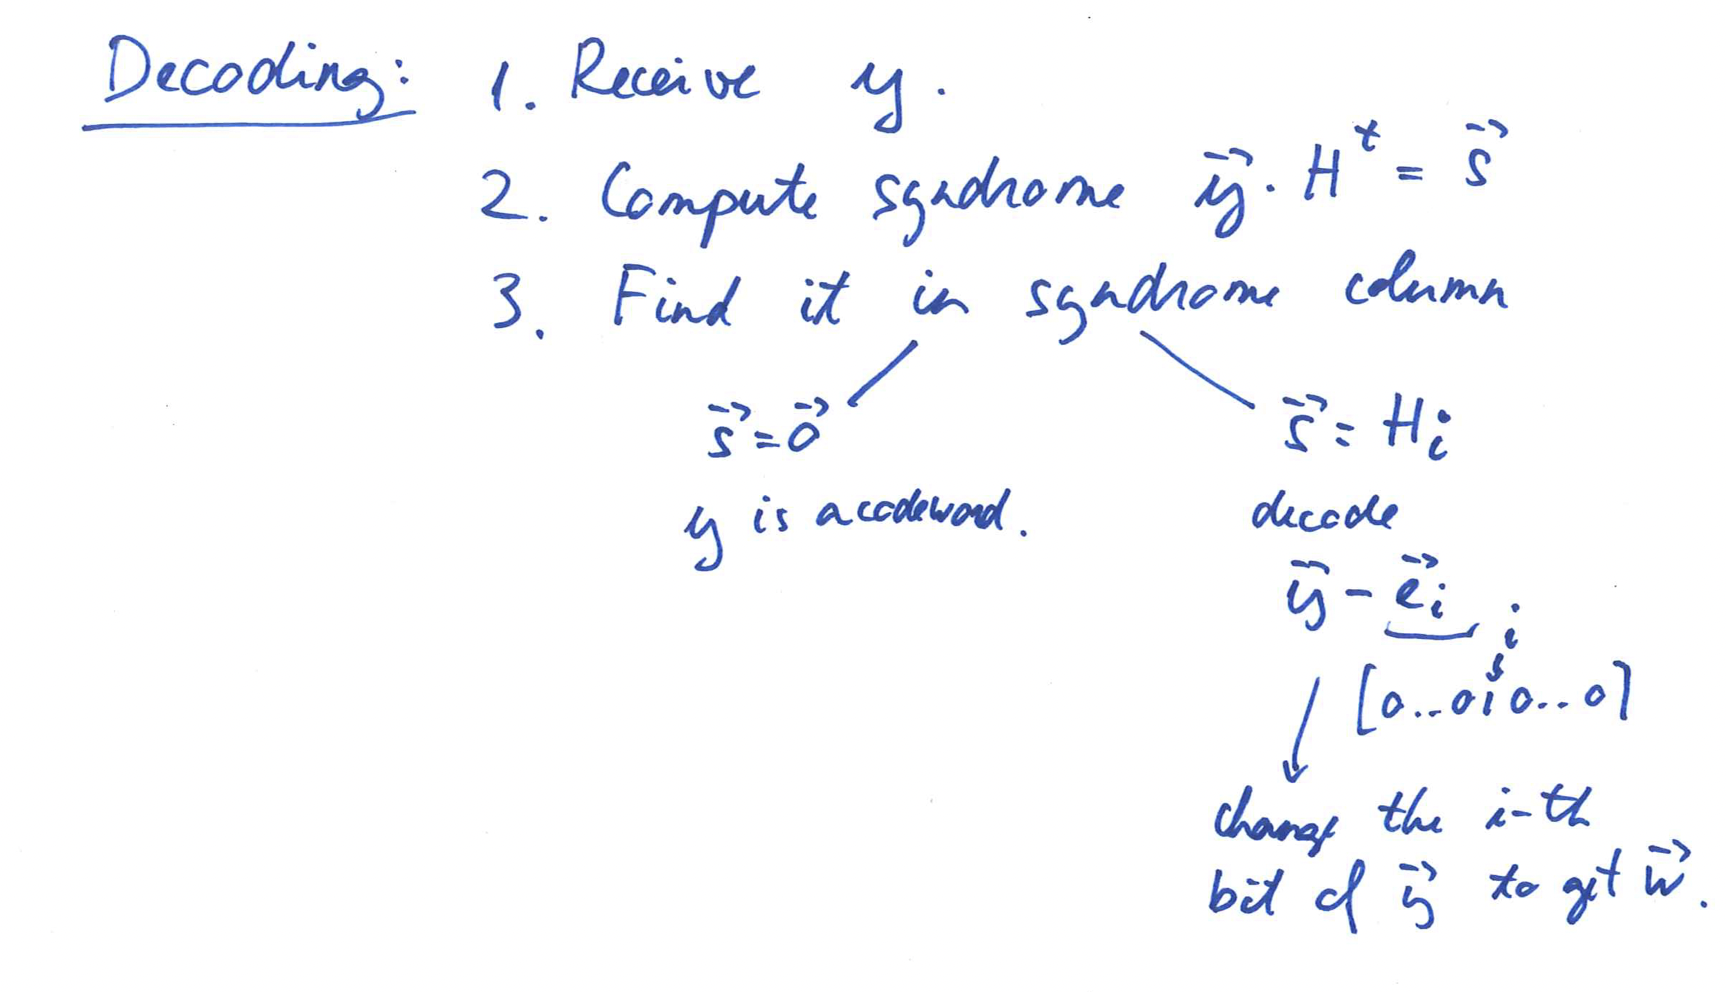 Decoding: 1. Receive y.
2. Compute syndrome y⃗ · Hᵗ = s⃗
3. Find it in syndrome column
s⃗ = 0⃗
y is a codeword.
s⃗ = Hᵢ
decode
y⃗ - e⃗ᵢ
i
[0..010..0]
change the i-th
bit of y⃗ to get w⃗.